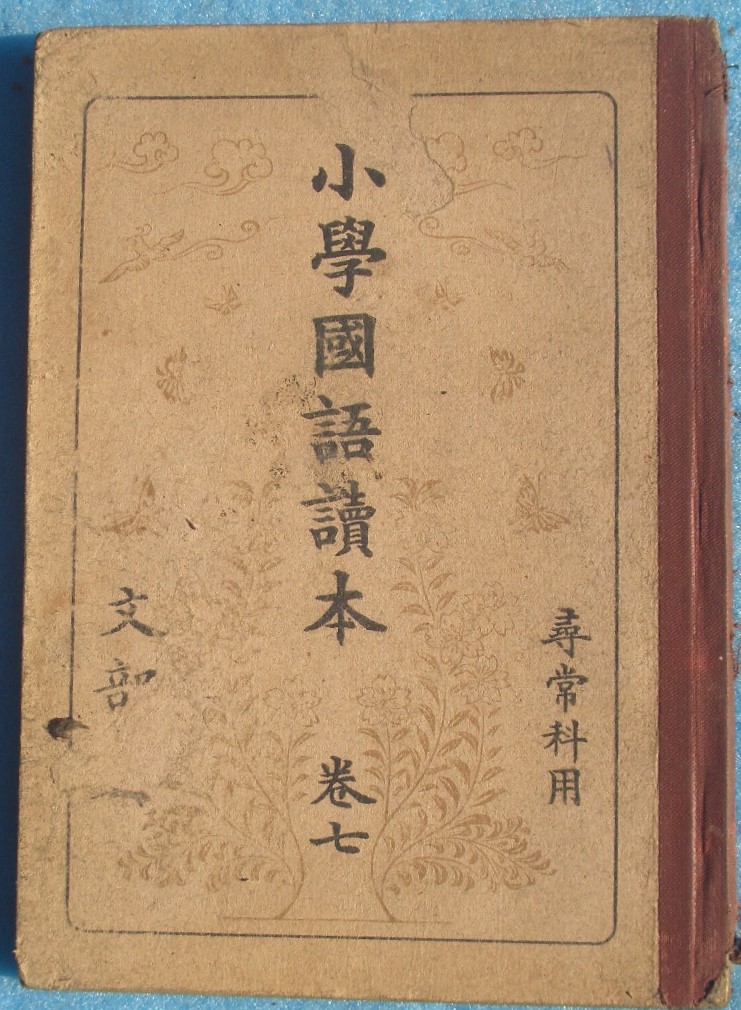 尋常科用
小學國語讀本 卷七
文部